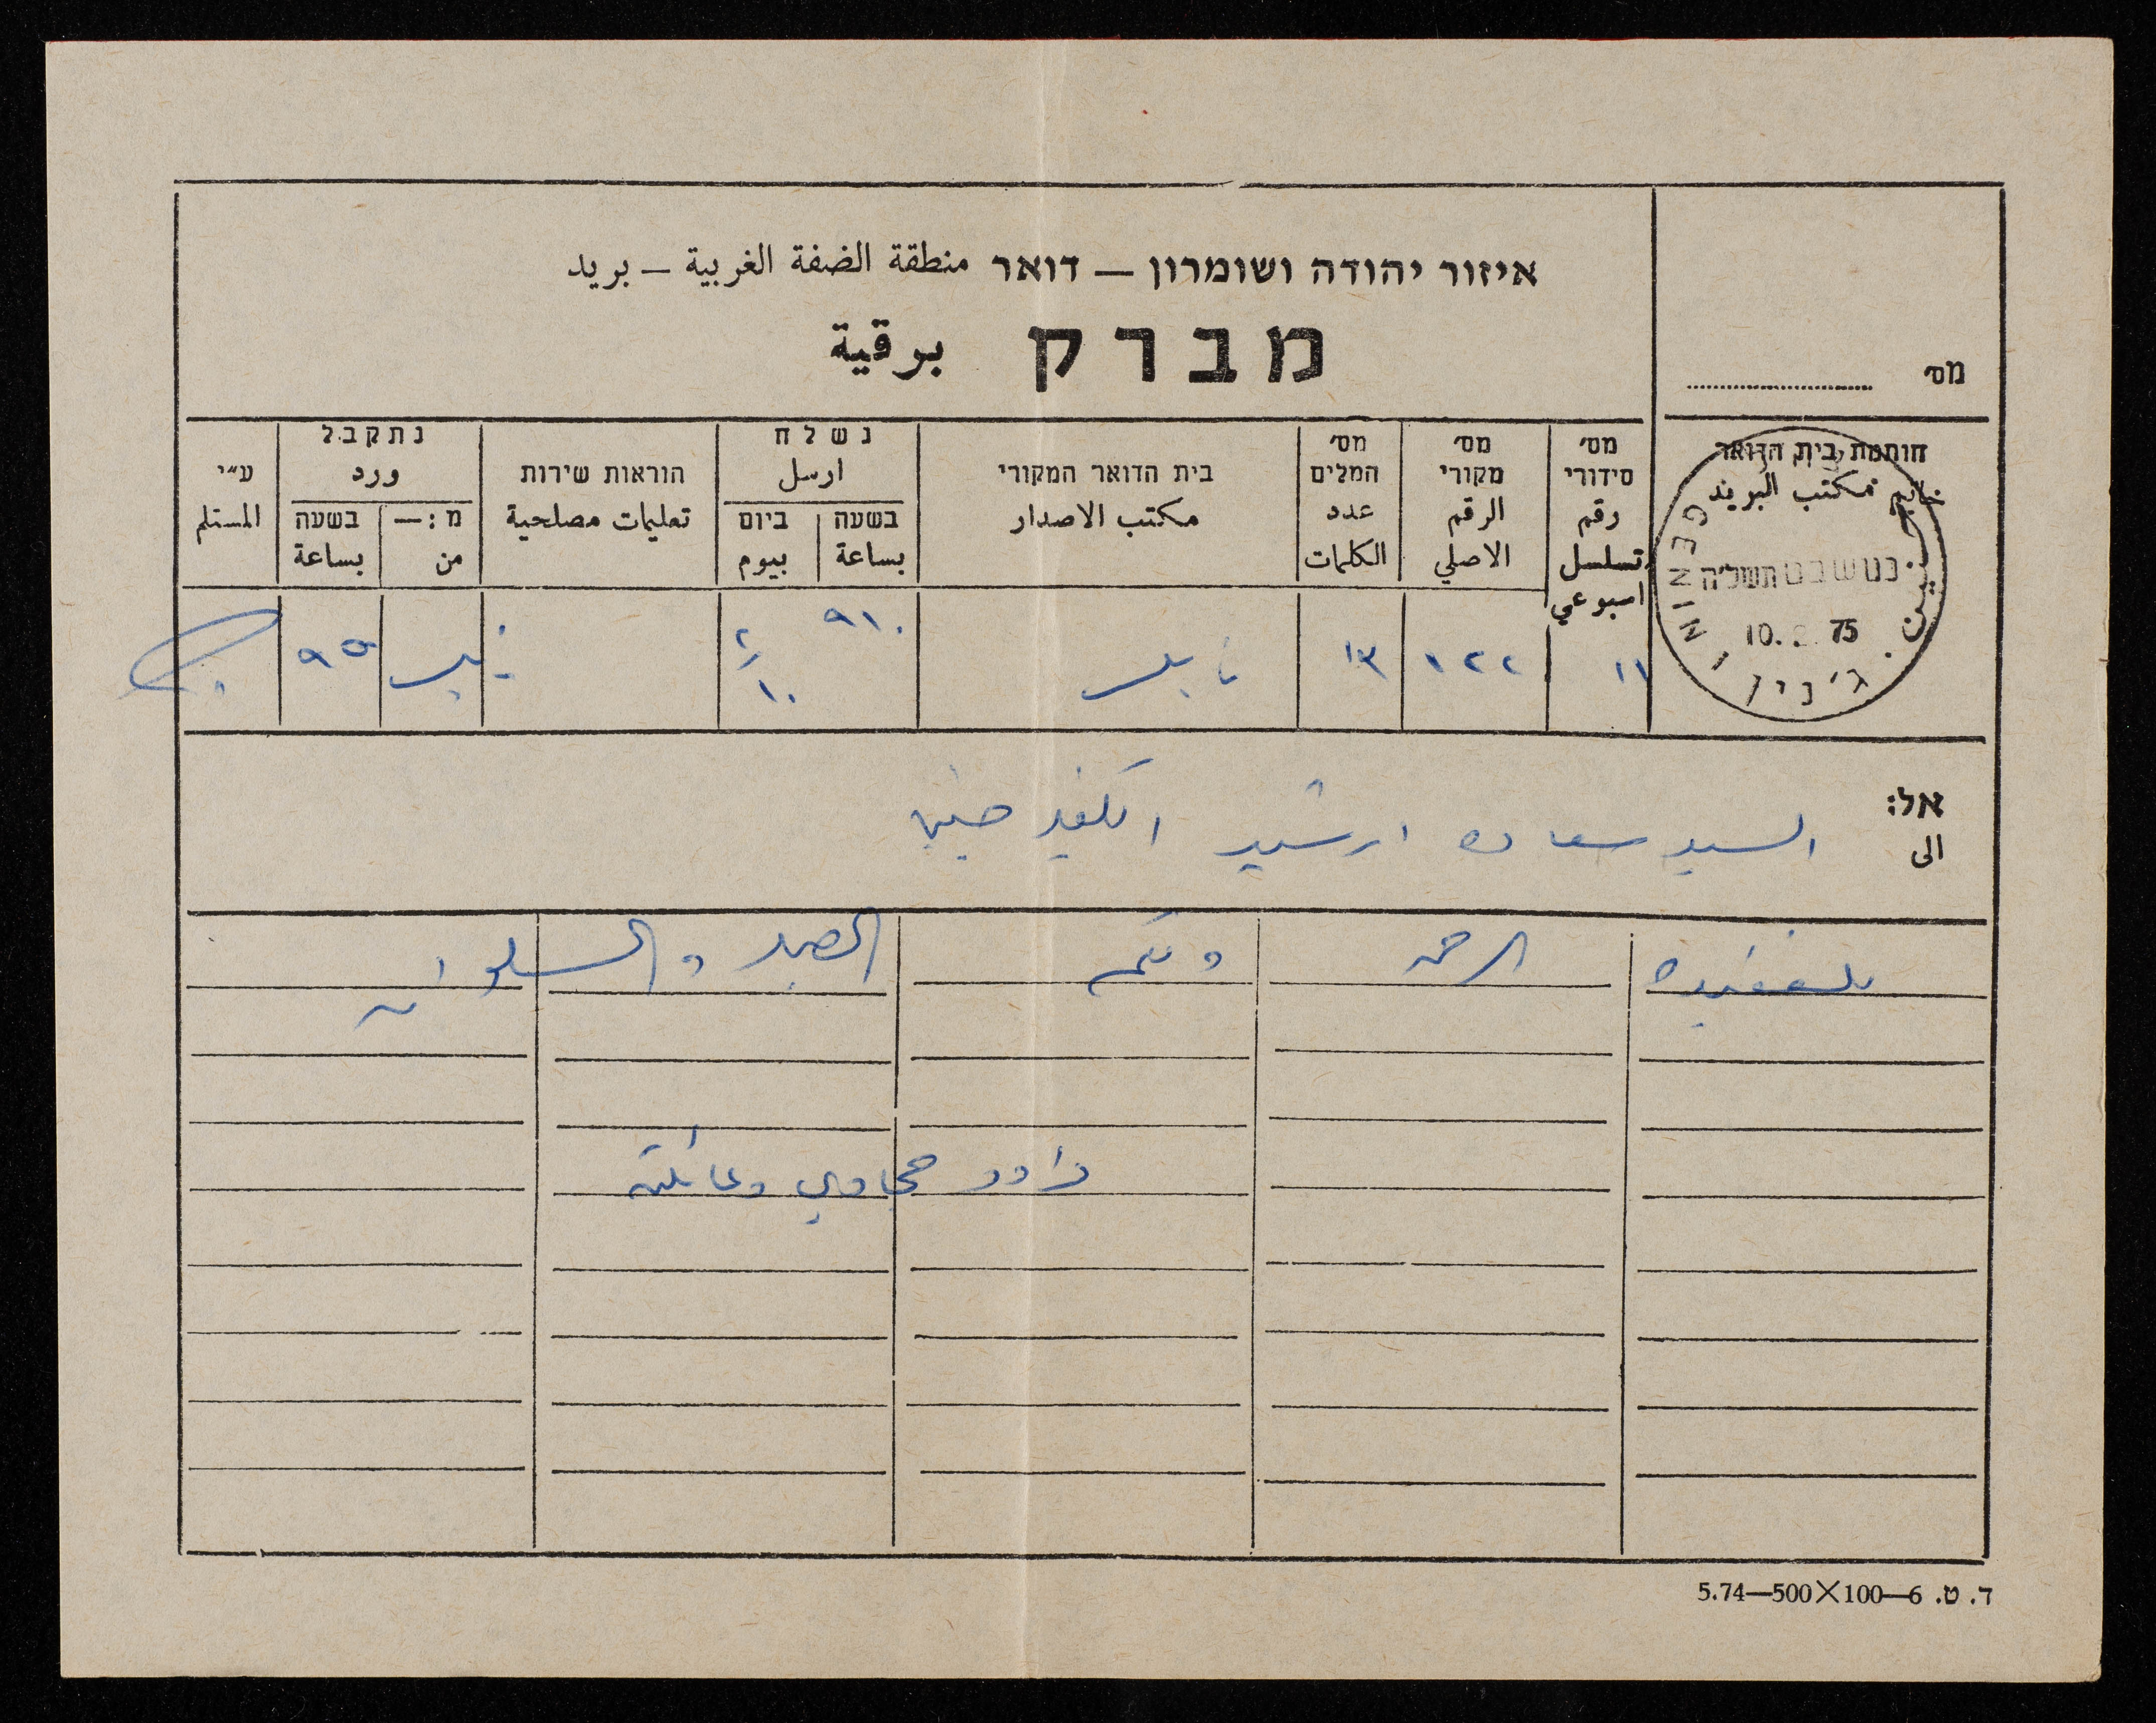 איזור יהודה ושומרון — דואר منطقة الضفة الغربية — بريد
מברק برقية
מס׳
חותמת בית הדואר
خاتم مكتب البريد
מס׳ סידורי رقم تسلسل اسبوعي
מס׳ מקורי الرقم الاصلي
מס׳ המלים عدد الكلمات
בית הדואר המקורי مكتب الاصدار
נשלח ارسل
בשעה بساعة
ביום بيوم
הוראות שירות تعليمات مصلحية
נתקבל ورد
מ:— من
בשעה بساعة
ע״י المستلم
جنين
ג׳נין
JENIN
כט שבט תשל״ה
10. 75
١١
١٢٢
١٣
نابلس
٩١٠
٢/١٠
٩٥
אל:
الى
السيد سعاده ارشيد الكفير جنين
للفقيده الرحمه ولكم الصبر والسلوان
داود حجاوي وعائلته
ד. ט. 6—100×500—5.74